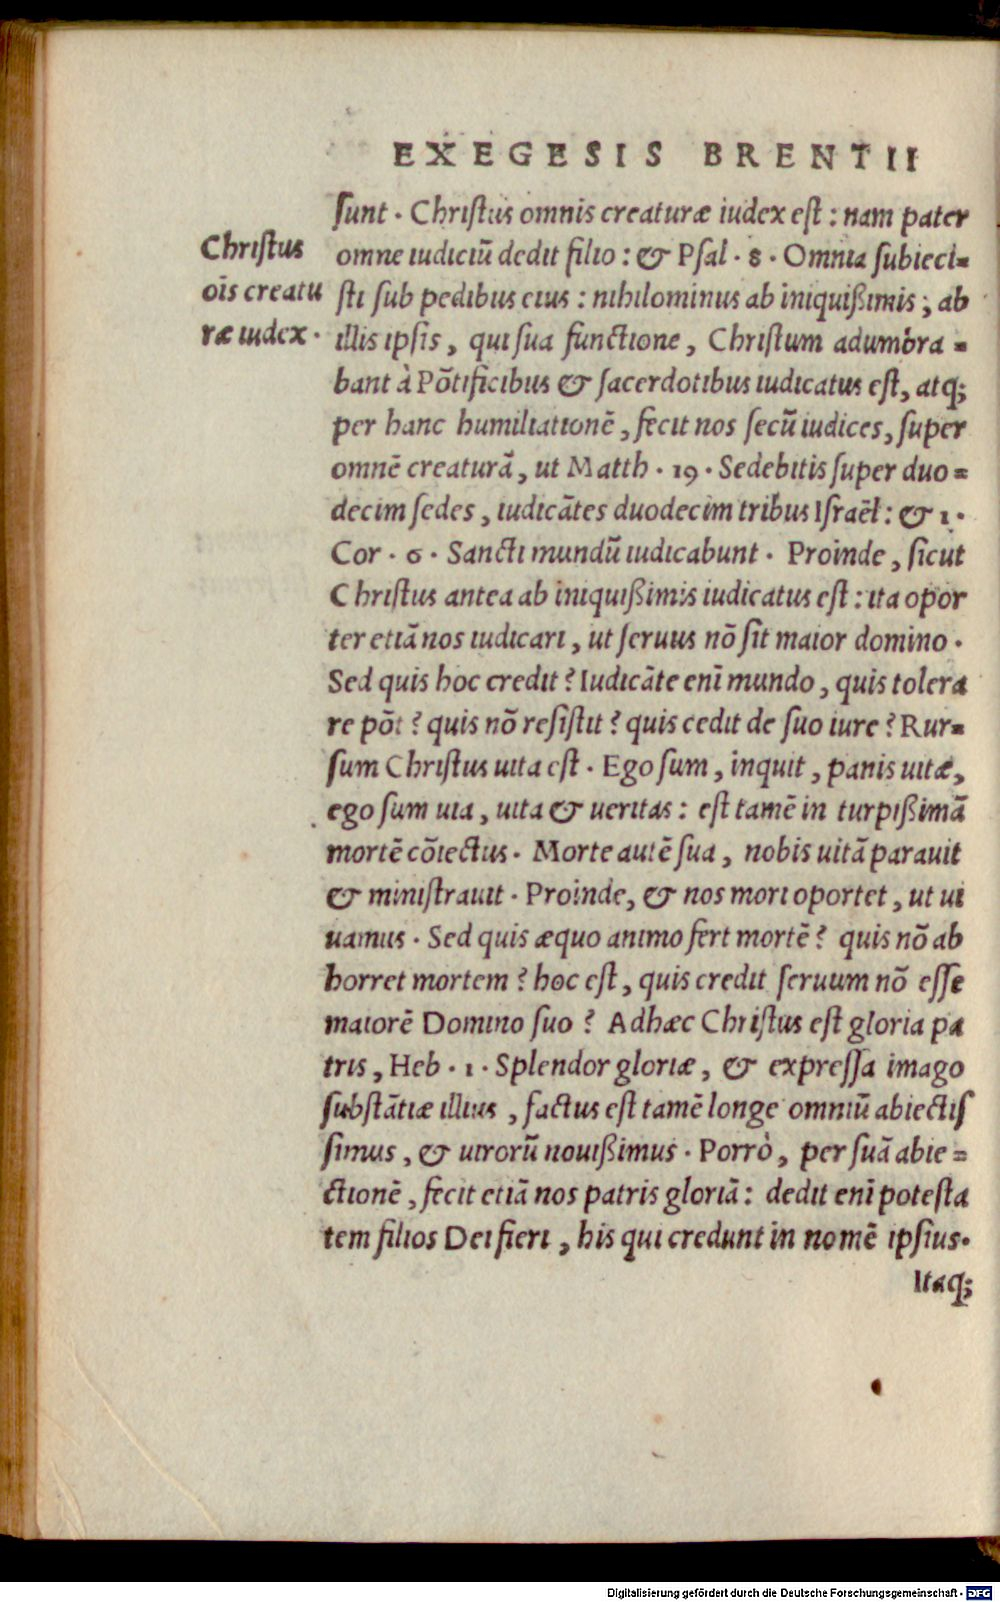 EXEGESIS BRENTII
ſunt . Chriſtus omnis creaturæ iudex eſt : nam pater
Chriſtus
omne iudiciū dedit filio : & Pſal . 8 . Omnia ſubieci=
oīs creatu
ſti ſub pedibus eius : nihilominus ab iniquißimis ; ab
ræ iudex .
illis ipſis , qui ſua functione , Chriſtum adumbra =
bant à Pōtificibus & ſacerdotibus iudicatus eſt , atq;
per hanc humiliationē , fecit nos ſecū iudices , ſuper
omnē creaturā , ut Matth . 19 . Sedebitis ſuper duo =
decim ſedes , iudicātes duodecim tribus Iſraēl : & 1 .
Cor . 6 . Sancti mundū iudicabunt . Proinde , ſicut
Chriſtus antea ab iniquißimis iudicatus eſt : ita opor
ter etiā nos iudicari , ut ſeruus nō ſit maior domino .
Sed quis hoc credit ? Iudicāte enī mundo , quis tolera
re pōt ? quis nō reſiſtit ? quis cedit de ſuo iure ? Rur=
ſum Chriſtus uita eſt . Ego ſum , inquit , panis uitæ ,
ego ſum uia , uita & ueritas : eſt tamē in turpißimā
mortē cōiectus . Morte autē ſua , nobis uitā parauit
& miniſtrauit . Proinde , & nos mori oportet , ut ui
uamus . Sed quis æquo animo fert mortē ? quis nō ab
horret mortem ? hoc eſt , quis credit ſeruum nō eſſe
maiorē Domino ſuo ? Adhæc Chriſtus eſt gloria pa
tris , Heb . 1 . Splendor gloriæ , & expreſſa imago
ſubſtātiæ illius , factus eſt tamē longe omniū abiectiſ
ſimus , & uirorū nouißimus . Porrò , per ſuā abie =
ctionē , fecit etiā nos patris gloriā : dedit enī poteſta
tem filios Dei fieri , his qui credunt in nomē ipſius .
Itaq;
Digitalisierung gefördert durch die Deutsche Forschungsgemeinschaft - DFG